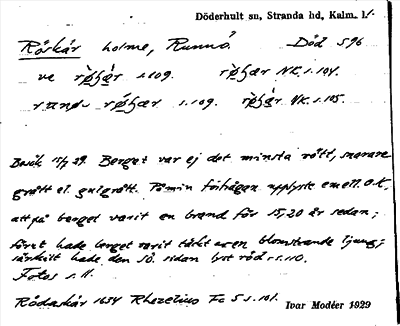 Döderhult sn, Stranda hd, Kalm. l.
Röskär holme, Runnö. Död 596
va röʃær s. 109. röʃær NK. s. 104.
rund röʃær s. 109. röʃær NK. s. 105.
Besök 15/7 29. Berget var ej det minsta rött, snarare
grått el. gulgrått. På min förfrågan upplyste em. O.K.
att på berget varit en brand för 15, 20 år sedan;
förut hade berget varit täckt av en blomstrande ljung;
särskilt hade den sö. sidan lyst röd. s. 110.
Fotos s. 11.
Rödaskär 1654 Rhezelius Fc 5 s. 101. Ivar Modéer 1929